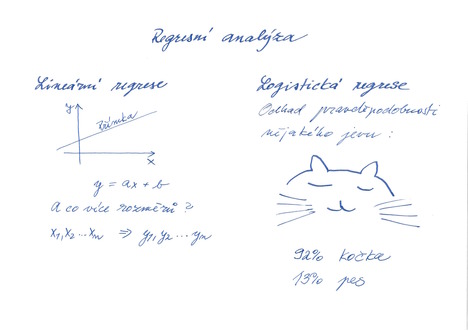 Regresní analýza
Lineární regrese
y
přímka
x
y = ax + b
A co více rozměrů ?
x₁, x₂ ... xₙ ⇒ y₁, y₂ ... yₙ
Logistická regrese
Odhad pravděpodobnosti
nějakého jevu :
92% kočka
13% pes